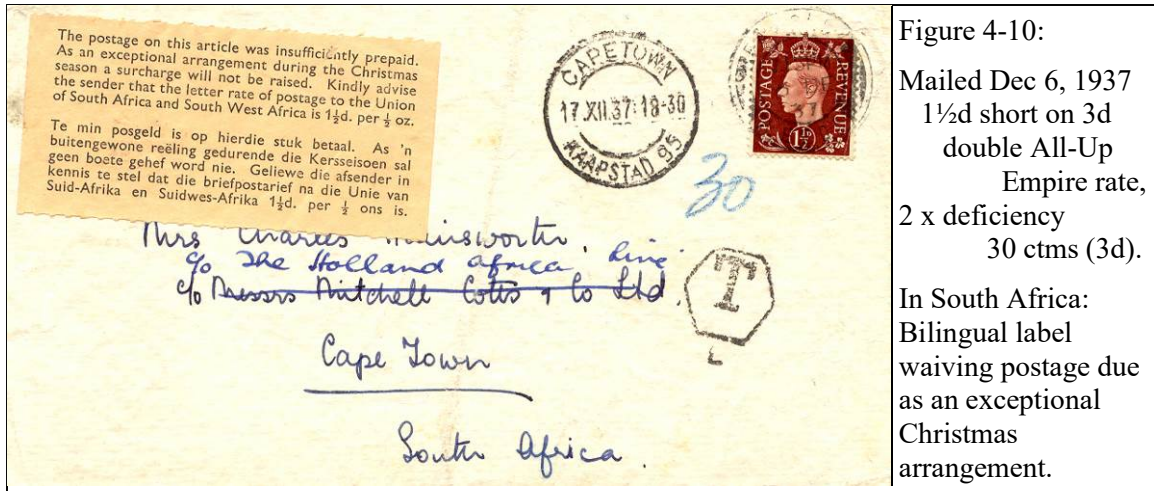 The postage on this article was insufficiently prepaid.
As an exceptional arrangement during the Christmas
season a surcharge will not be raised. Kindly advise
the sender that the letter rate of postage to the Union
of South Africa and South West Africa is 1½d. per ½ oz.
Te min posgeld is op hierdie stuk betaal. As 'n
buitengewone reëling gedurende die Kersseisoen sal
geen boete gehef word nie. Geliewe die afsender in
kennis te stel dat die briefpostarief na die Unie van
Suid-Afrika en Suidwes-Afrika 1½d. per ½ ons is.
CAPETOWN
17.XII.37.18-30
KAAPSTAD 95
POSTAGE
REVENUE
1½D
30
Mrs Charles
c/o The Holland Africa Line
c/o Messrs Mitchell Cotts & Co Ltd
T
Cape Town
South Africa.
Figure 4-10:
Mailed Dec 6, 1937
1½d short on 3d
double All-Up
Empire rate,
2 x deficiency
30 ctms (3d).
In South Africa:
Bilingual label
waiving postage due
as an exceptional
Christmas
arrangement.